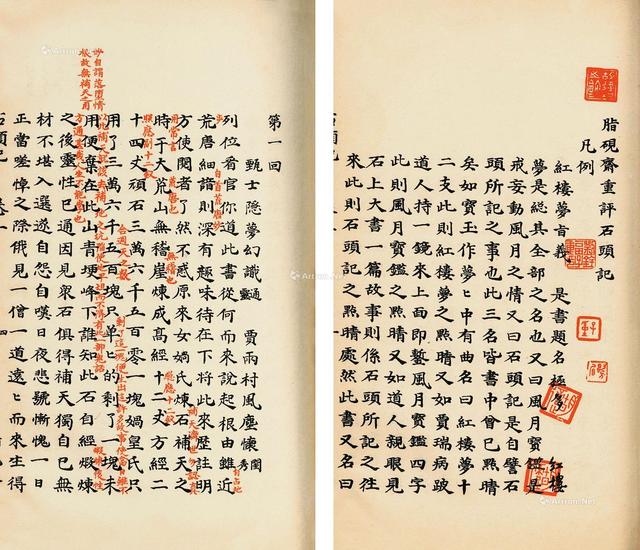 脂硯齋重評石頭記
凡例
紅樓夢旨義 是書題名極多 紅樓
夢是總其全部之名也又曰風月寶鑑是
戒妄動風月之情又曰石頭記是自譬石
頭所記之事也此三名皆書中曾已點睛
矣如寶玉作夢夢中有曲名曰紅樓夢十
二支此則紅樓夢之點睛又如賈瑞病跛
道人持一鏡來上面即鏨風月寶鑑四字
此則風月寶鑑之點睛又如道人親眼見
石上大書一篇故事則係石頭所記之往
來此則石頭記之點睛處然此書又名曰
第一回
甄士隱夢幻識通靈 賈雨村風塵懷閨秀
列位看官你道此書從何而來說起根由雖近
自占地
步自首荒唐妙
荒唐細諳則深有趣味待在下將此來歷註明
方使閱者了然不惑原來女媧氏煉石補天之
補天濟世勿認真
用常言
時于大荒山無稽崖煉成高經十二丈方經二
荒唐也
無稽也
總應十二釵
照應副十二釵
十四丈頑石三萬六千五百零一塊媧皇氏只
合週天之數
用了三萬六千五百塊只單單的剩了一塊未
用便棄在此山青埂峰下誰知此石自經煆煉
妙自謂落墮情
根故無補天之用
之後靈性已通因見衆石俱得補天獨自己無
材不堪入選遂自怨自嘆日夜悲號慚愧一日
正當嗟悼之際俄見一僧一道遠遠而來生得